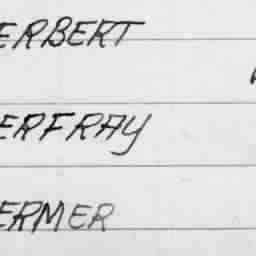 ERBERT
ERFRAY
ERMER